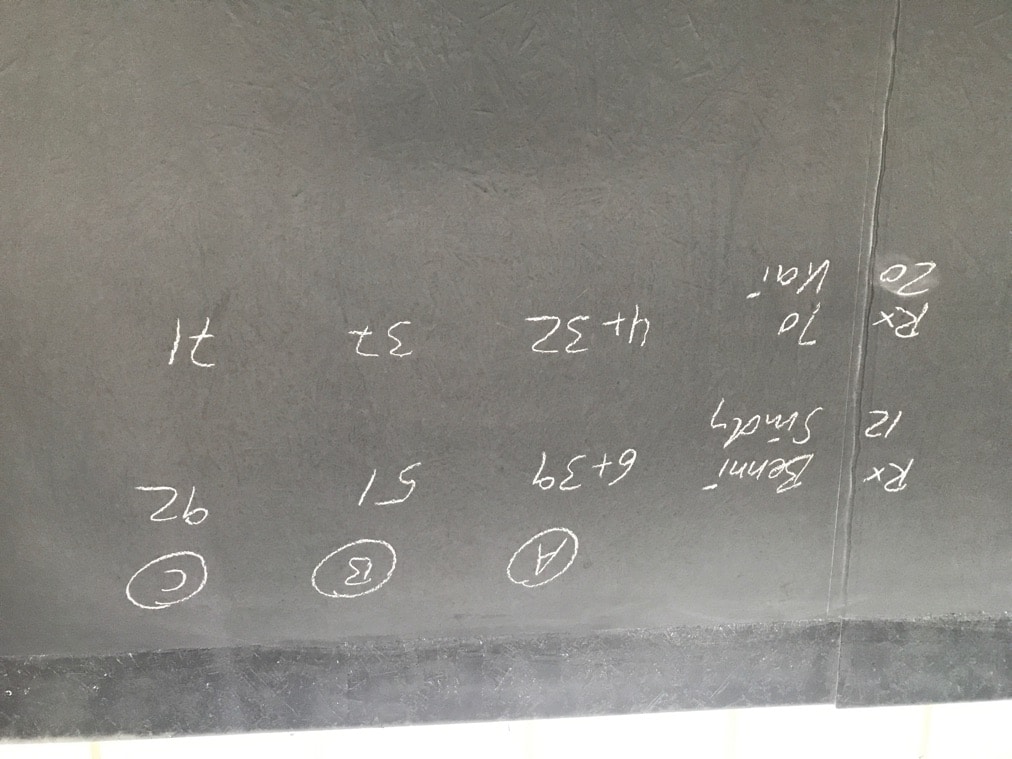 A B C
Rx Benni 6+39 51 92
12 Sindy
Rx Jo 4+32 37 71
20 Kai